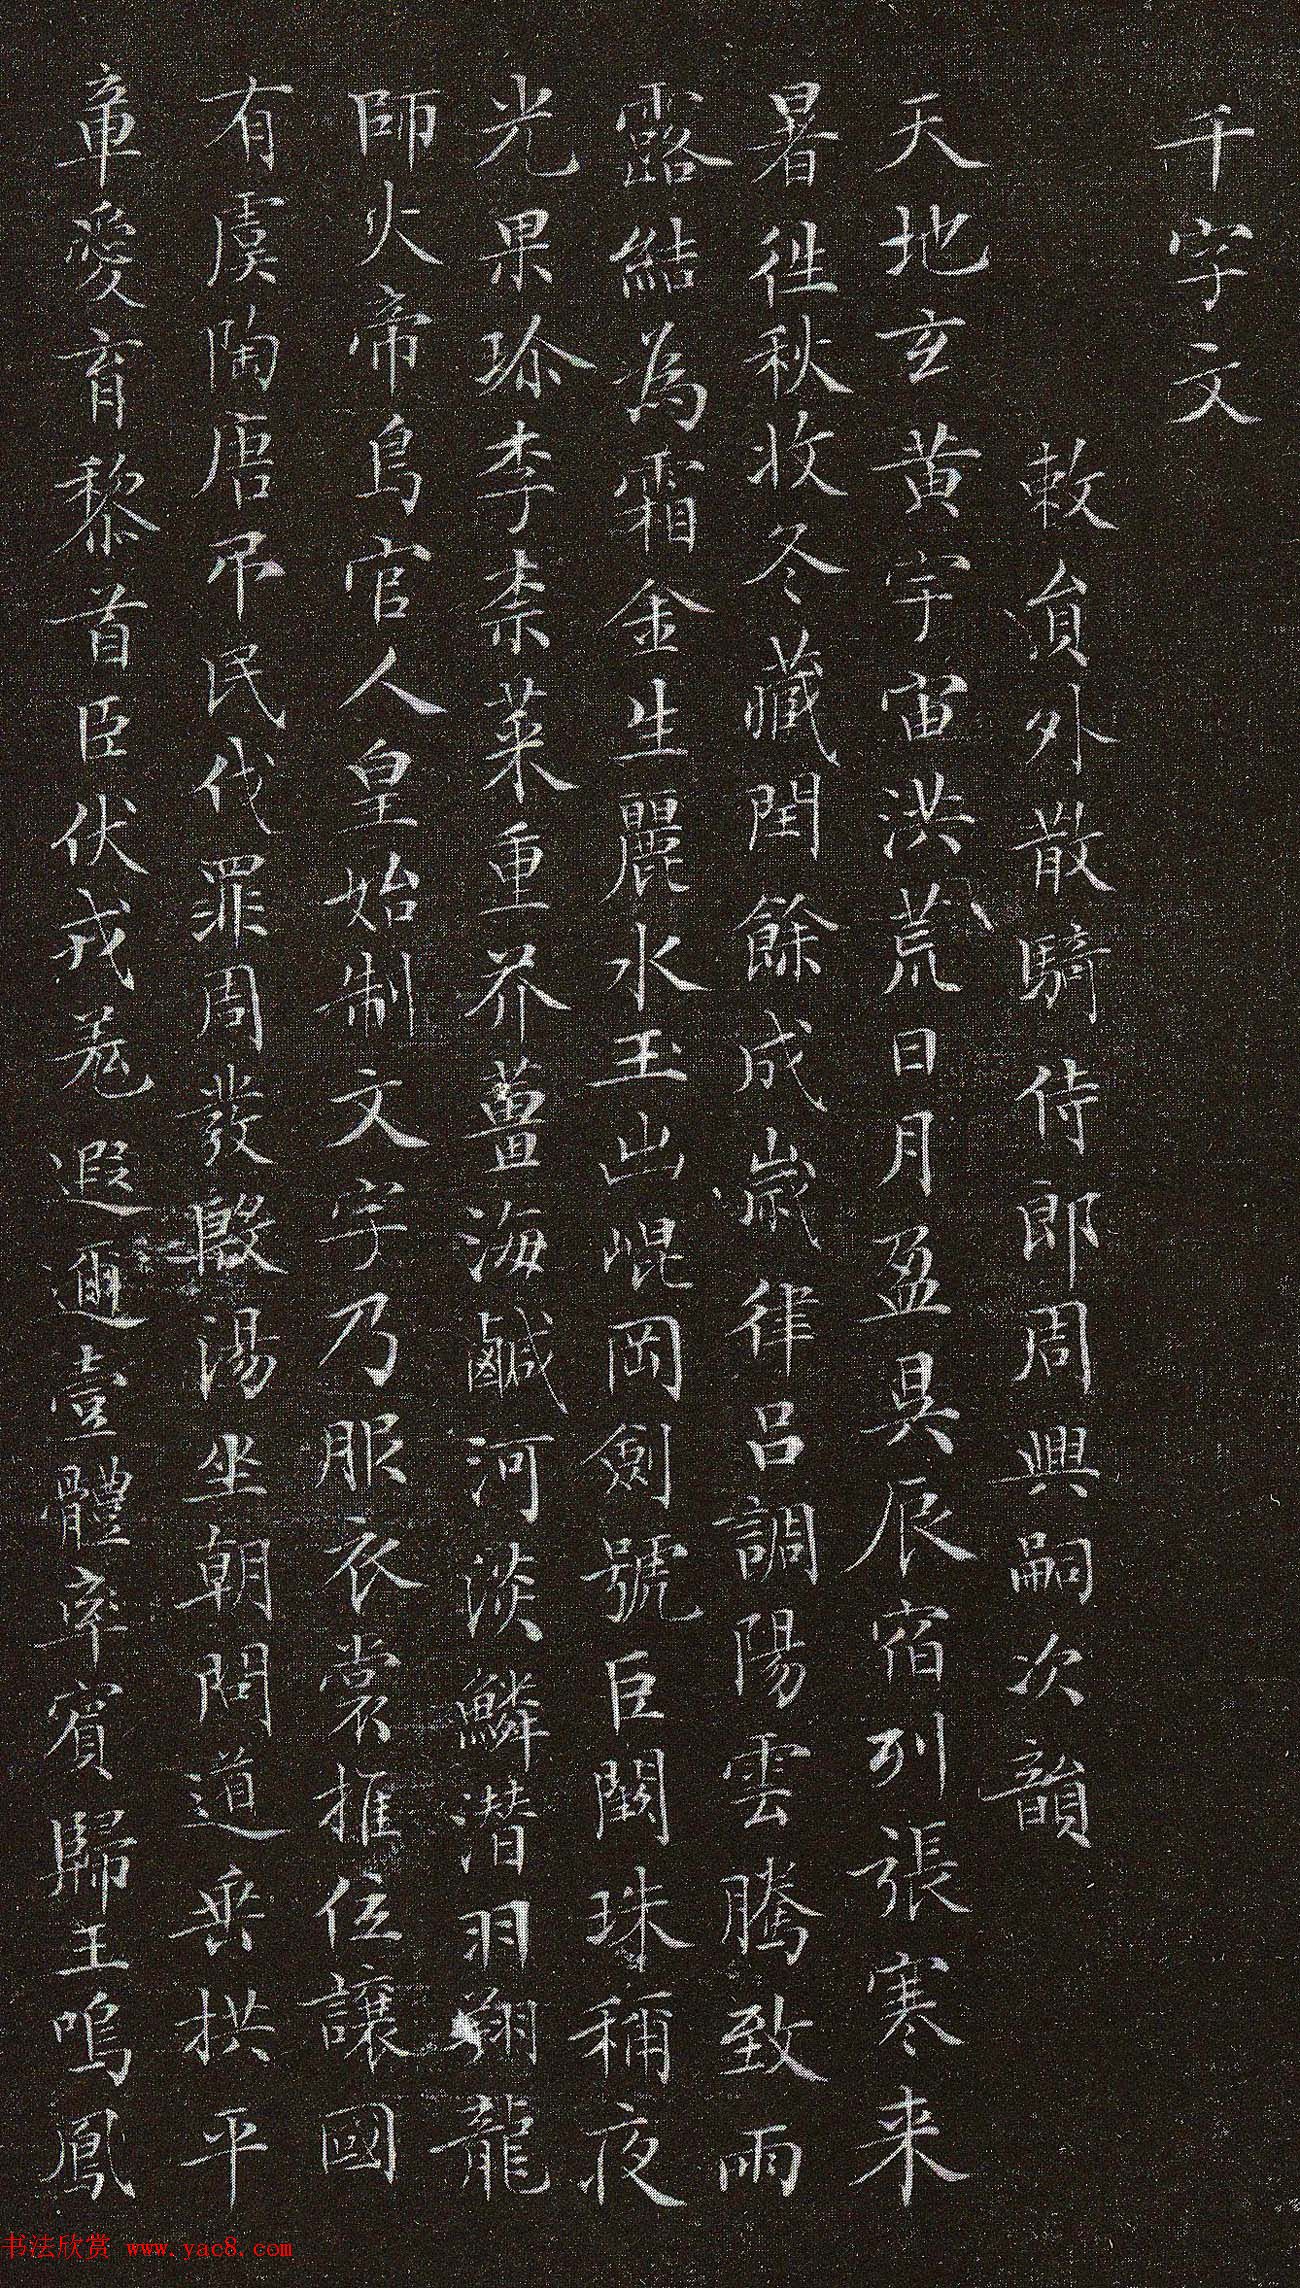 千字文
敕員外散騎侍郎周興嗣次韻
天地玄黃宇宙洪荒日月盈昃辰宿列張寒来
暑往秋收冬藏閏餘成歲律呂調陽雲騰致雨
露結為霜金生麗水玉出崐岡劍號巨闕珠稱夜
光果珍李柰菜重芥薑海鹹河淡鱗潛羽翔龍
師火帝鳥官人皇始制文字乃服衣裳推位讓國
有虞陶唐吊民伐罪周發殷湯坐朝問道垂拱平
章愛育黎首臣伏戎羌遐邇壹體率賓歸王鳴鳳
书法欣赏 www.yac8.com